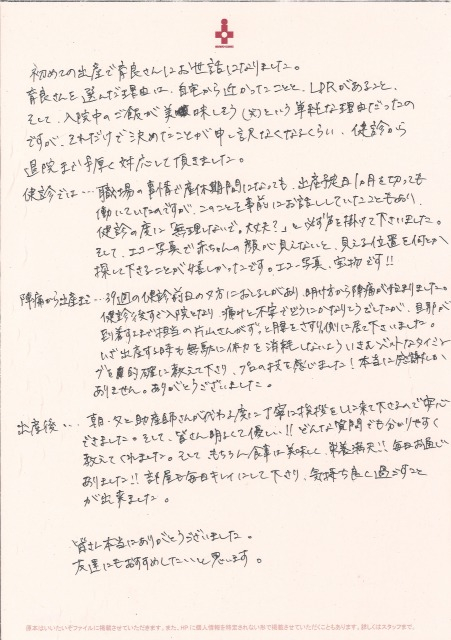 初めての出産で育良さんにお世話になりました。
育良さんを選んだ理由は、自宅から近かったことと、LDRがあること、
そして、入院中のご飯が美味しそう(笑)という単純な理由だったの
ですが、それだけで決めたことが申し訳なくなるくらい、健診から
退院まで手厚く対応して頂きました。
健診では… 職場の事情で産休期間になっても、出産予定日1ヵ月を切っても
働いていたのですが、このことも事前にお話ししていたこともあり、
健診の度に「無理しないで。大丈夫?」と必ず声を掛けて下さいました。
そして、エコー写真で赤ちゃんの顔が見えないと、見える位置を何とか
探して下さることが嬉しかったです。エコー写真、宝物です!!
陣痛から出産まで…39週の健診前日の夕方におしるしがあり、明け方から陣痛が始まりました。
健診後すぐ入院となり、痛みと不安でどうにかなりそうでしたが、旦那が
到着するまで担当の片山さんがずっと腰をさすり側に居て下さいました。
いざ出産する時も無駄に体力を消耗しないよういきむベストなタイミン
グを的確に教えて下さり、プロの技を感じました!本当に感謝しか
ありません。ありがとうございました。
出産後… 朝・夕と助産師さんが代わる度に丁寧に挨拶をしに来て下さるので安心
できました。そして、皆さん明るくて優しい!!どんな質問でも分かりやすく
教えてくれました。そして、もちろん食事は美味しく、栄養満点!!毎日お通じ
ありました!!部屋も毎日キレイにして下さり、気持ち良く過ごすこと
が出来ました。
皆さん本当にありがとうございました。
友達にもおすすめしたいと思います。
原本はいいたいぞファイルに掲載させていただきます。また、HPに個人情報を特定されない形で掲載させていただくこともあります。詳しくはスタッフまで。